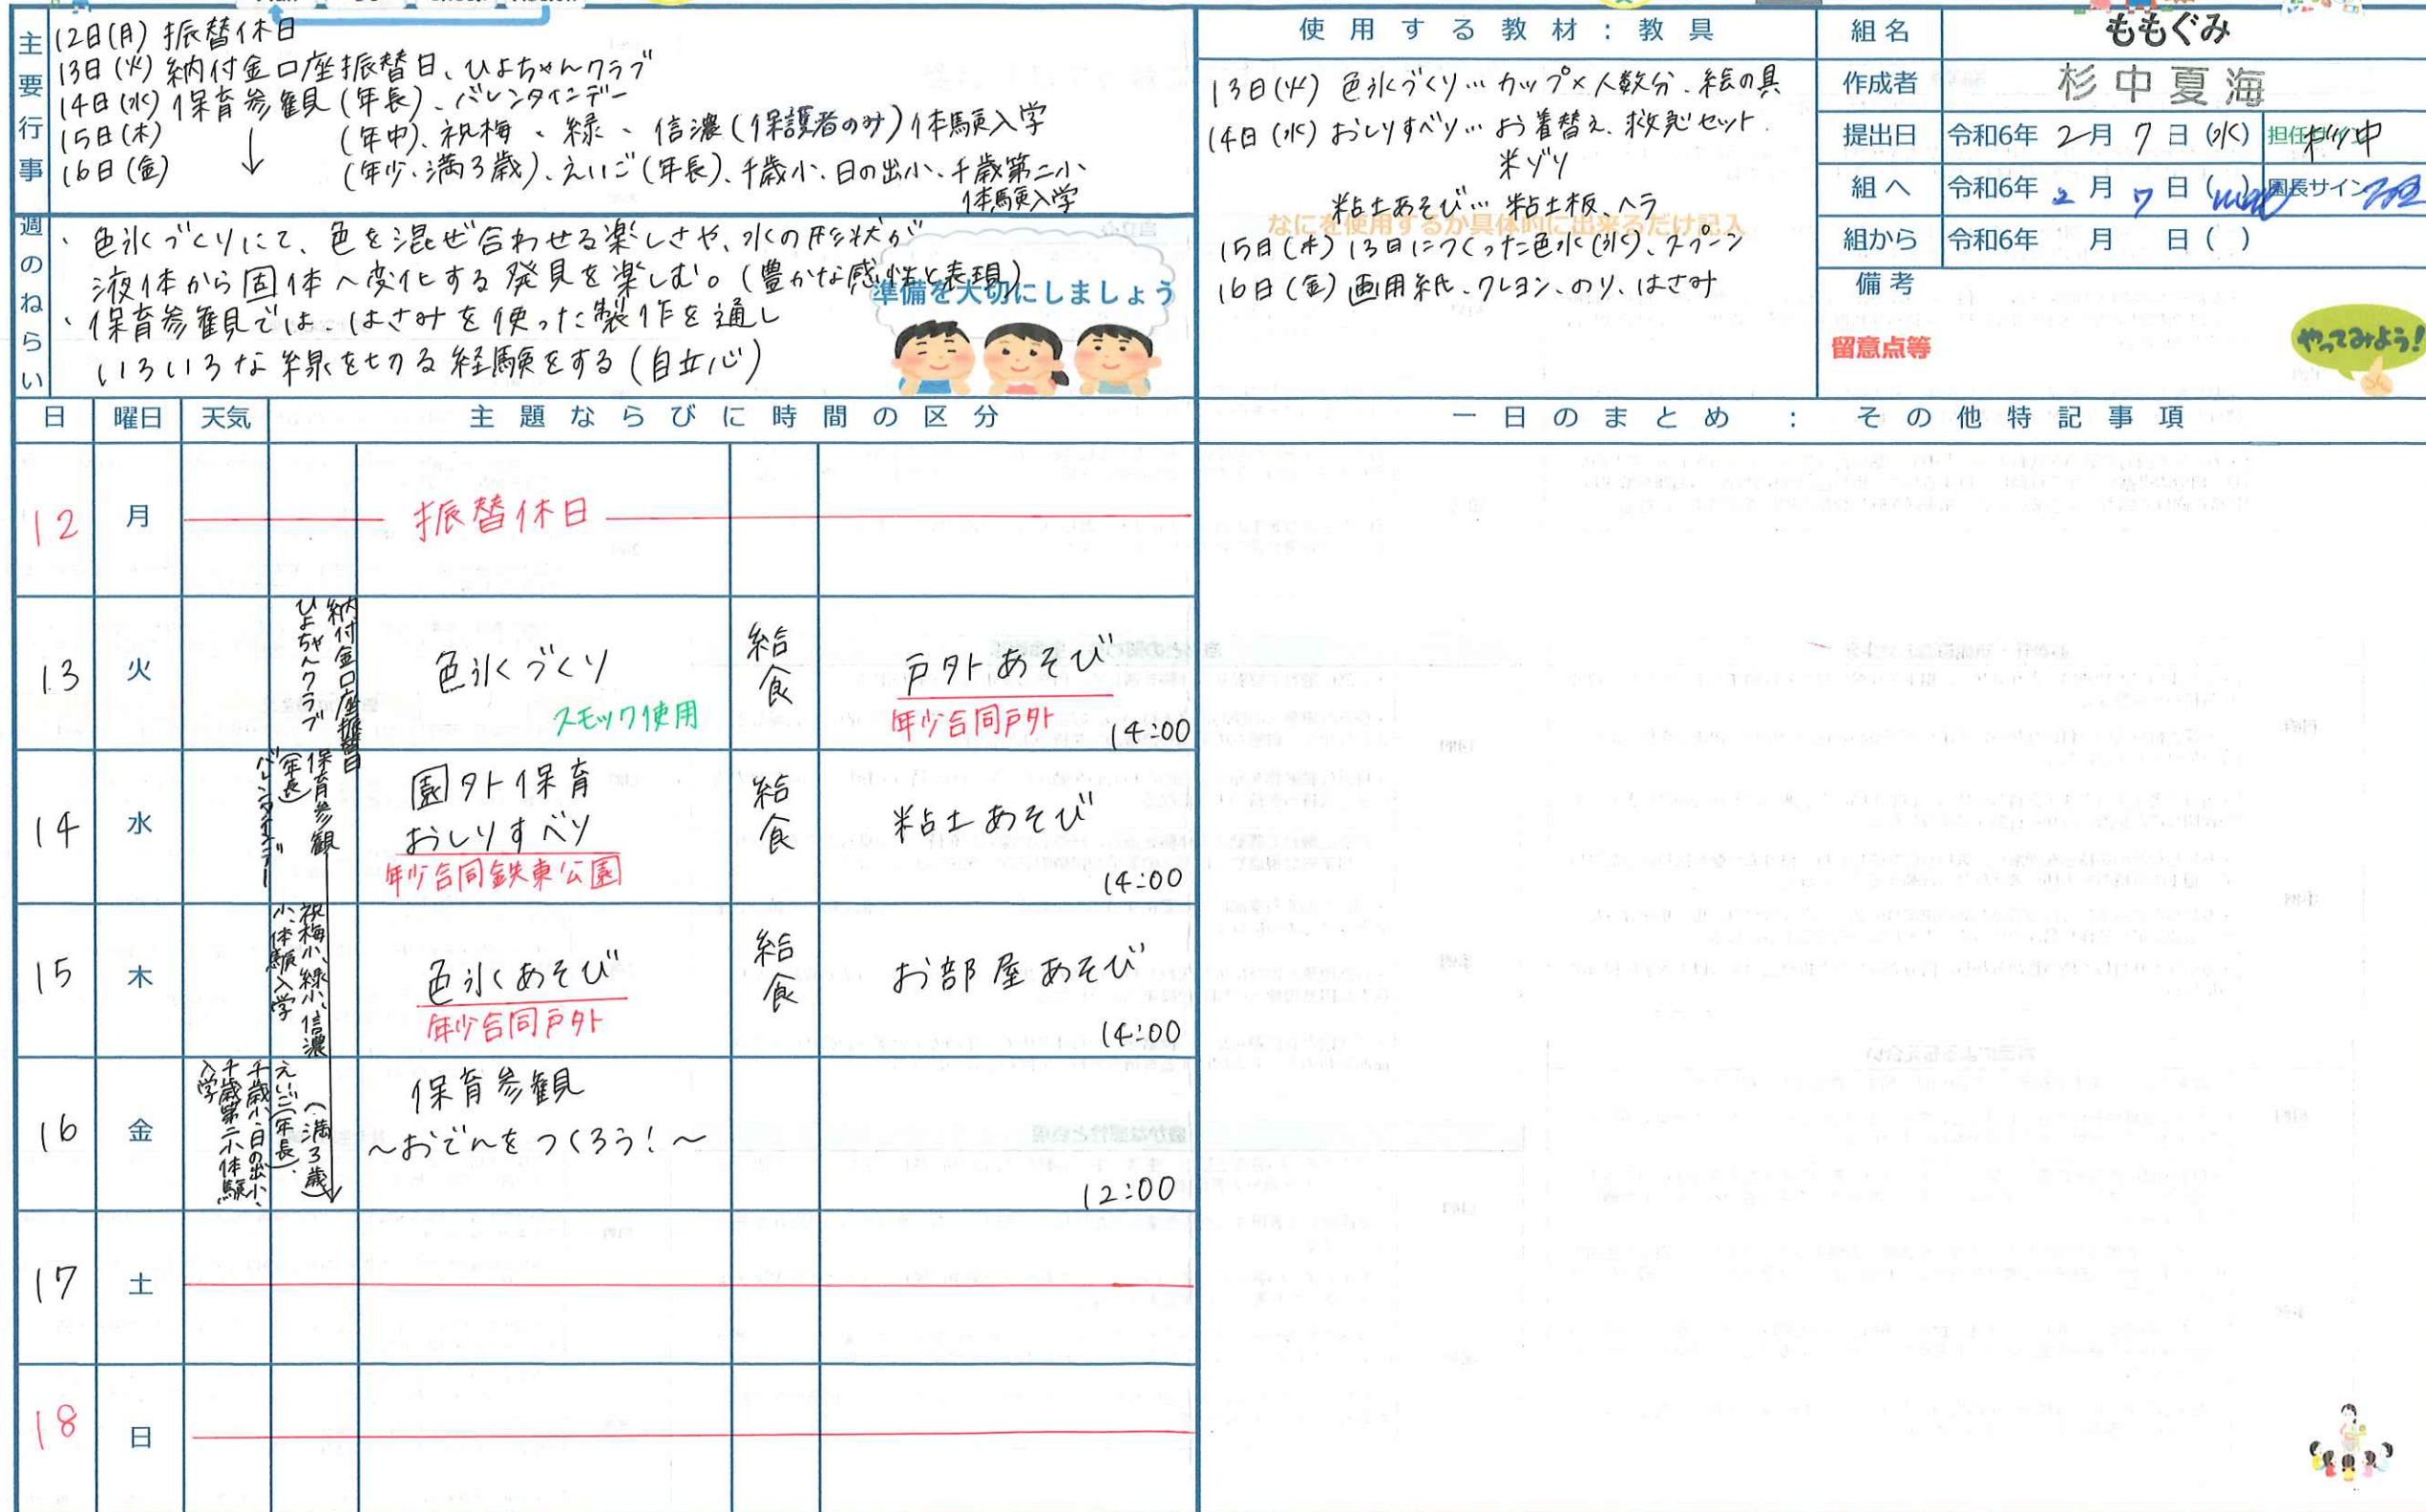 主要行事
12日(月) 振替休日
13日(火) 納付金口座振替日、ひよちゃんクラブ
14日(水) 保育参観(年長)、バレンタインデー
15日(木) ↓ (年中)、祝梅、緑、信濃(保護者のみ)体験入学
16日(金) (年少、満3歳)、えいご(年長)、千歳小、日の出小、千歳第二小
体験入学
週のねらい
・色氷づくりにて、色を混ぜ合わせる楽しさや、水の形状が
液体から固体へ変化する発見を楽しむ。(豊かな感性と表現)
・保育参観では、はさみを使った製作を通し
いろいろな線を切る経験をする(自立心)
準備を大切にしましょう
使用する教材:教具
13日(火) 色氷づくり…カップ×人数分、絵の具
14日(水) おしりすべり…お着替え、救急セット、
米ゾリ
粘土あそび…粘土板、ヘラ
なにを使用するか具体的に出来るだけ記入
15日(木) 13日につくった色水(氷)、スプーン
16日(金) 画用紙、クレヨン、のり、はさみ
組名 ももぐみ
作成者 杉中夏海
提出日 令和6年 2月 7日(水) 担任サイン 杉中
組へ 令和6年 2月 7日( ) 園長サイン
組から 令和6年 月 日( )
備考
留意点等
やってみよう!
日 曜日 天気 主題ならびに時間の区分 一日のまとめ : その他特記事項
12 月 振替休日
13 火
納付金口座振替日
ひよちゃんクラブ
色氷づくり
スモック使用
給食
戸外あそび
年少合同戸外
14:00
14 水
保育参観
(年長)
バレンタインデー
園外保育
おしりすべり
年少合同鉄東公園
給食
粘土あそび
14:00
15 木
祝梅小、緑小、信濃
小、体験入学
色氷あそび
年少合同戸外
給食
お部屋あそび
14:00
16 金
(満3歳)
えいご(年長)、
千歳小、日の出小、
千歳第二小体験
入学
保育参観
～おでんをつくろう!～
12:00
17 土
18 日